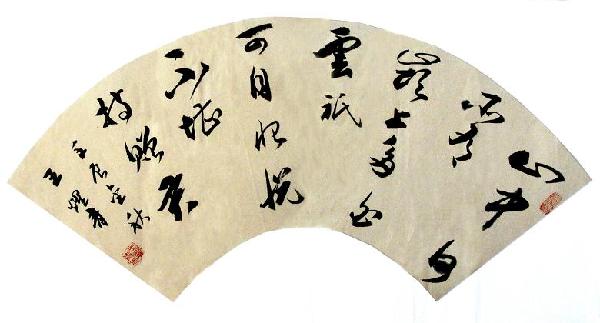 山中何
所有
嶺上多白
雲祇
可自怡悅
不堪
持贈君
金秋
王